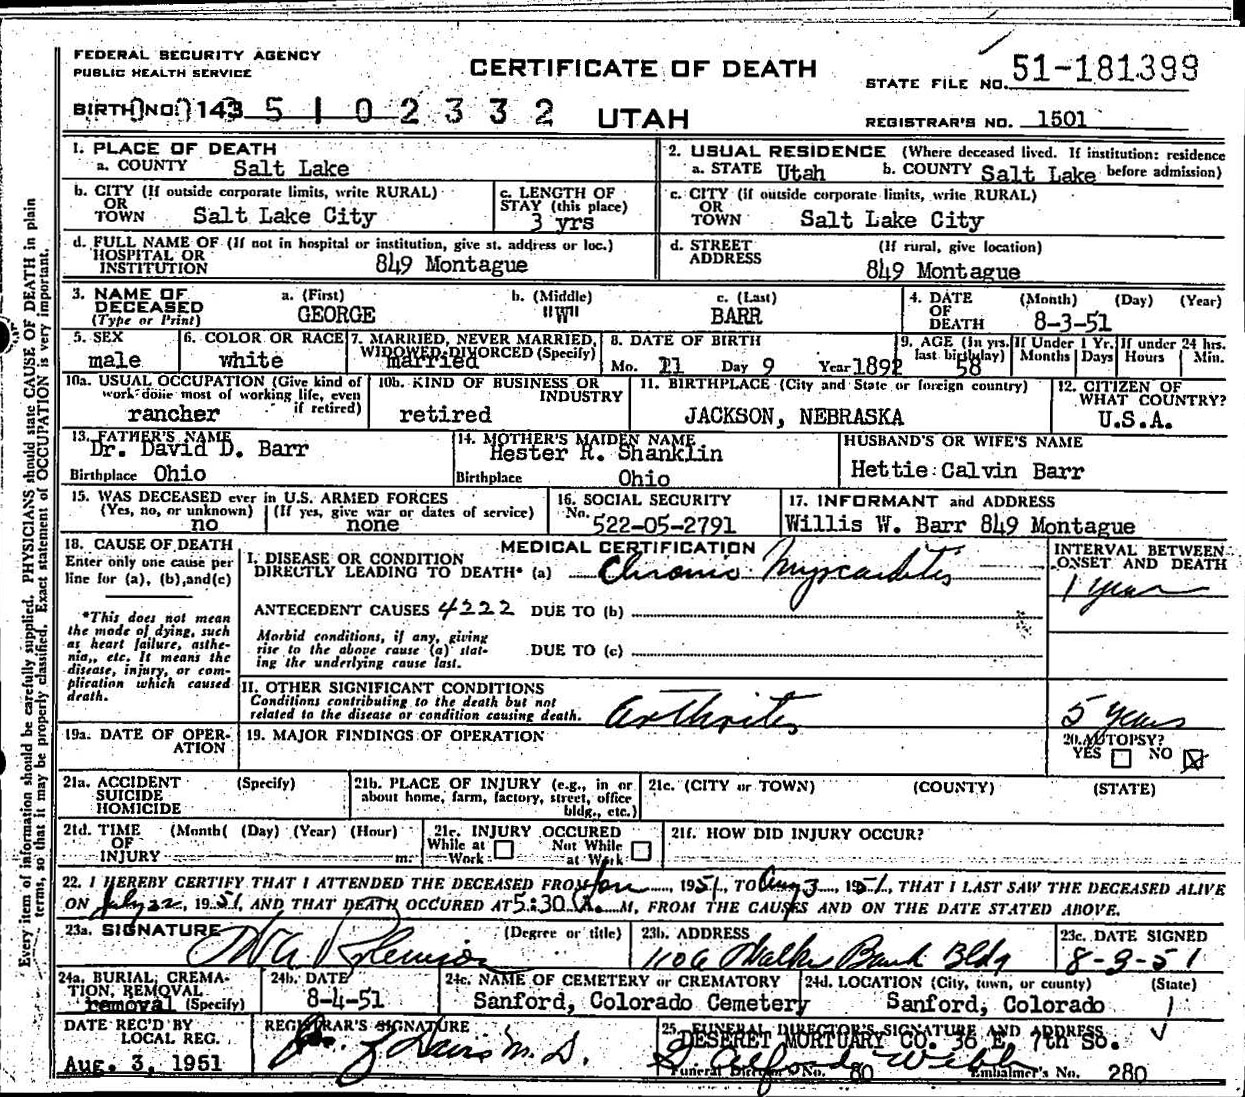 FEDERAL SECURITY AGENCY
PUBLIC HEALTH SERVICE
CERTIFICATE OF DEATH
STATE FILE NO. 51-181399
BIRTH NO. 143 5 1 0 2 3 3 2
UTAH
REGISTRAR'S NO. 1501
1. PLACE OF DEATH
a. COUNTY Salt Lake
2. USUAL RESIDENCE (Where deceased lived. If institution: residence before admission)
a. STATE Utah b. COUNTY Salt Lake
b. CITY (If outside corporate limits, write RURAL)
OR
TOWN Salt Lake City
c. LENGTH OF
STAY (this place)
3 yrs
c. CITY (if outside corporate limits, write RURAL)
OR
TOWN Salt Lake City
d. FULL NAME OF (If not in hospital or institution, give st. address or loc.)
HOSPITAL OR
INSTITUTION 849 Montague
d. STREET (If rural, give location)
ADDRESS
849 Montague
3. NAME OF
DECEASED
(Type or Print)
a. (First)
GEORGE
b. (Middle)
"W"
c. (Last)
BARR
4. DATE (Month) (Day) (Year)
OF
DEATH 8-3-51
5. SEX
male
6. COLOR OR RACE
white
7. MARRIED, NEVER MARRIED,
WIDOWED, DIVORCED (Specify)
married
8. DATE OF BIRTH
Mo. 11 Day 9 Year 1892
9. AGE (In yrs. last birthday)
58
If Under 1 Yr.
Months Days
If under 24 hrs.
Hours Min.
10a. USUAL OCCUPATION (Give kind of
work done most of working life, even
if retired)
rancher
10b. KIND OF BUSINESS OR
INDUSTRY
retired
11. BIRTHPLACE (City and State or foreign country)
JACKSON, NEBRASKA
12. CITIZEN OF
WHAT COUNTRY?
U.S.A.
13. FATHER'S NAME
Dr. David D. Barr
Birthplace Ohio
14. MOTHER'S MAIDEN NAME
Hester R. Shanklin
Birthplace Ohio
HUSBAND'S OR WIFE'S NAME
Hettie Calvin Barr
15. WAS DECEASED ever in U.S. ARMED FORCES
(Yes, no, or unknown) (If yes, give war or dates of service)
no none
16. SOCIAL SECURITY
No. 522-05-2791
17. INFORMANT and ADDRESS
Willis W. Barr 849 Montague
18. CAUSE OF DEATH
Enter only one cause per
line for (a), (b), and (c)
*This does not mean
the mode of dying, such
as heart failure, asthe-
nia,, etc. It means the
disease, injury, or com-
plication which caused
death.
MEDICAL CERTIFICATION
I. DISEASE OR CONDITION
DIRECTLY LEADING TO DEATH* (a) Chronic Myocarditis
INTERVAL BETWEEN
ONSET AND DEATH
1 year
ANTECEDENT CAUSES 4222 DUE TO (b)
Morbid conditions, if any, giving
rise to the above cause (a) stat-
ing the underlying cause last.
DUE TO (c)
II. OTHER SIGNIFICANT CONDITIONS
Conditions contributing to the death but not
related to the disease or condition causing death.
Arthritis
5 years
19a. DATE OF OPER-
ATION
19. MAJOR FINDINGS OF OPERATION
20. AUTOPSY?
YES NO
21a. ACCIDENT (Specify)
SUICIDE
HOMICIDE
21b. PLACE OF INJURY (e.g., in or
about home, farm, factory, street, office
bldg., etc.)
21c. (CITY or TOWN) (COUNTY) (STATE)
21d. TIME (Month( (Day) (Year) (Hour)
OF
INJURY m.
21e. INJURY OCCURED
While at Work Not While at Work
21f. HOW DID INJURY OCCUR?
22. I HEREBY CERTIFY THAT I ATTENDED THE DECEASED FROM Jan, 1951, TO Aug 3, 1951, THAT I LAST SAW THE DECEASED ALIVE
ON July 22, 1951, AND THAT DEATH OCCURED AT 5:30 A. M, FROM THE CAUSES AND ON THE DATE STATED ABOVE.
23a. SIGNATURE (Degree or title)
23b. ADDRESS
1106 Walker Bank Bldg
23c. DATE SIGNED
8-3-51
24a. BURIAL, CREMA-
TION, REMOVAL
removal (Specify)
24b. DATE
8-4-51
24c. NAME OF CEMETERY or CREMATORY
Sanford, Colorado Cemetery
24d. LOCATION (City, town, or county) (State)
Sanford, Colorado
DATE REC'D BY
LOCAL REG.
Aug. 3, 1951
REGISTRAR'S SIGNATURE
M.D.
25. FUNERAL DIRECTOR'S SIGNATURE AND ADDRESS
DESERET MORTUARY CO. 36 E. 7th So.
Funeral Director's No. 80 Embalmer's No. 280
Every item of information should be carefully supplied. PHYSICIANS should state CAUSE OF DEATH in plain
terms, so that it may be properly classified. Exact statement of OCCUPATION is very important.